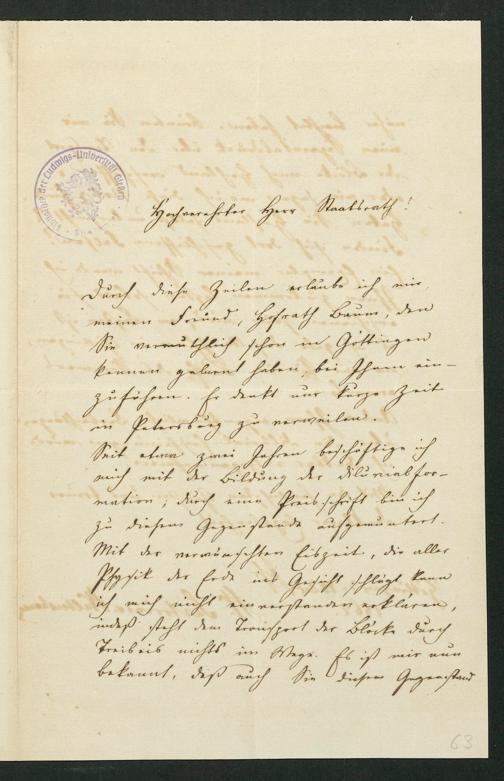 Hochverehrter Herr Staatsrath!
Durch diese Zeilen erlaube ich mir,
meinen Freund, Hofrath Baum, den
Sie vermuthlich schon in Göttingen
kennen gelernt haben, bei Ihnen ein-
zuführen. Er denkt nur kurze Zeit
in Petersburg zu verweilen.
Seit etwa zwei Jahren beschäftige ich
mich mit der Bildung der diluvialfor-
mation; durch eine Preisschrift bin ich
zu diesem Gegenstande aufgemuntert.
Mit der verwünschten Eiszeit, die aller
Physik der Erde ins Gesicht schlägt kann
ich mich nicht einverstanden erklären,
indeß steht dem Transport der Blöcke durch
Treibeis nichts im Wege. Es ist mir nun
bekannt, daß auch Sie diesem Gegenstand
der Ludwigs-Universität Gießen
63